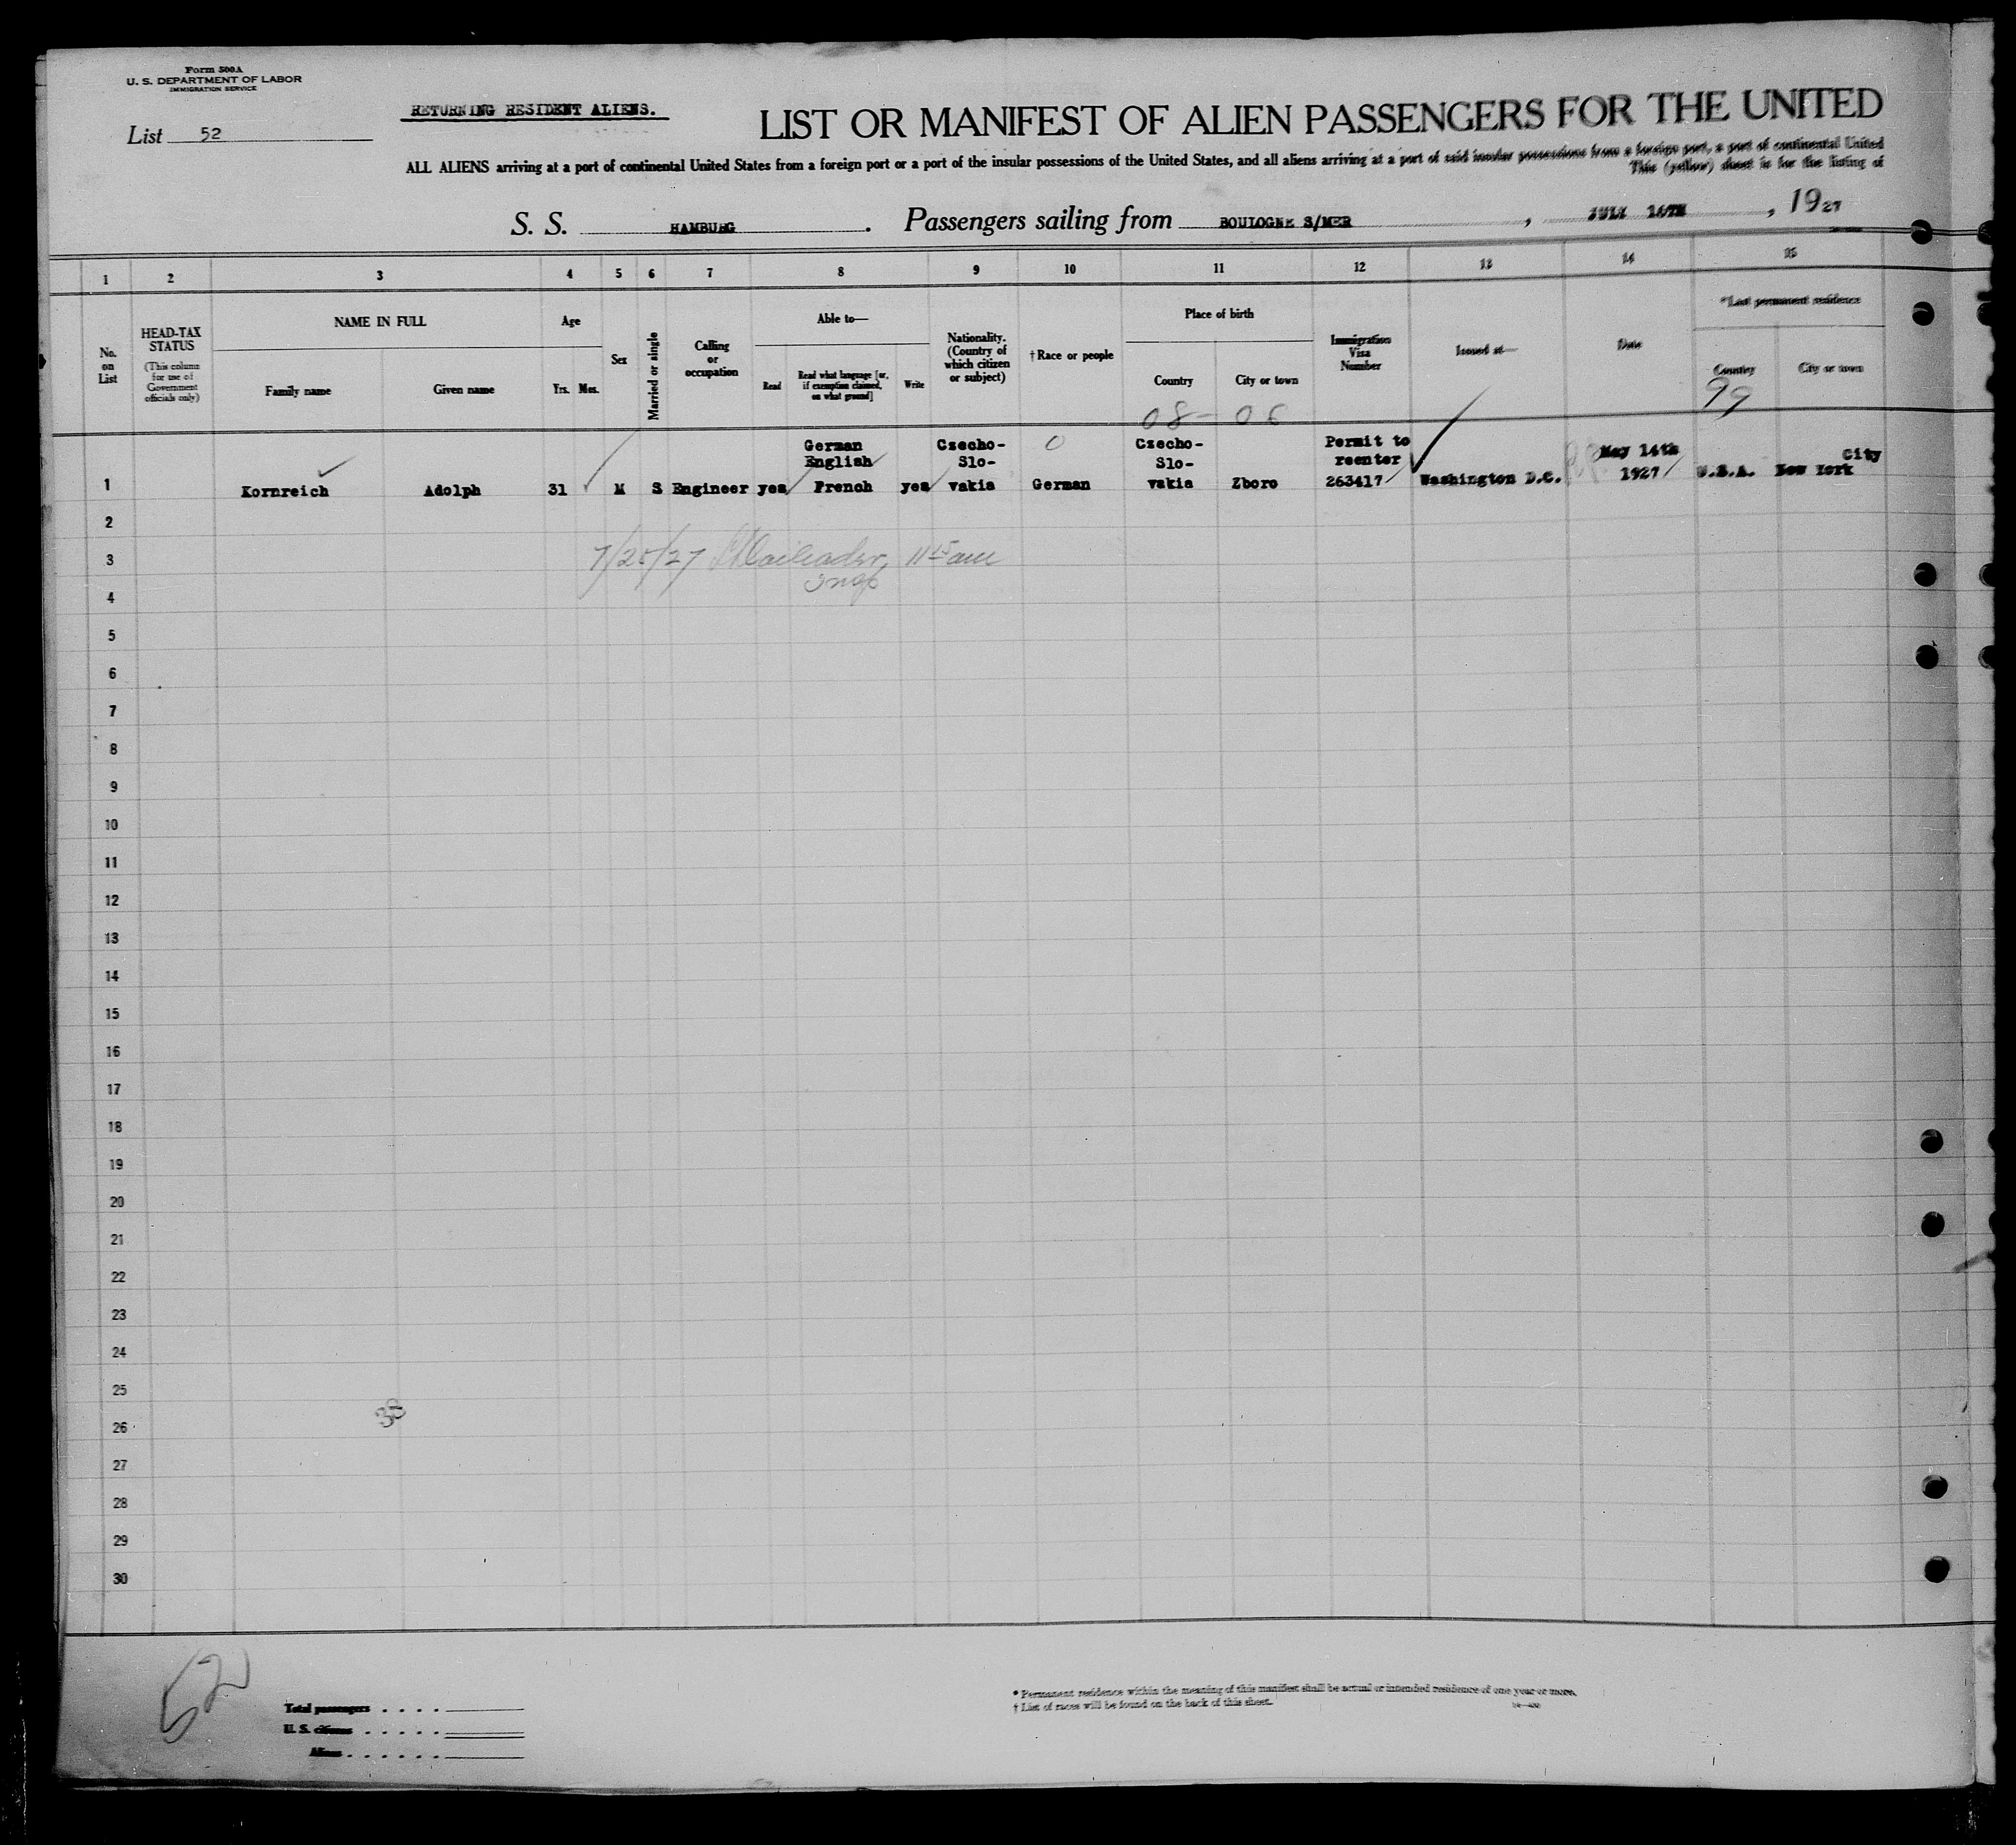 Form 500A
U. S. DEPARTMENT OF LABOR
IMMIGRATION SERVICE
List 52
RETURNING RESIDENT ALIENS.
LIST OR MANIFEST OF ALIEN PASSENGERS FOR THE UNITED
ALL ALIENS arriving at a port of continental United States from a foreign port or a port of the insular possessions of the United States, and all aliens arriving at a port of said insular possessions from a foreign port, a port of continental United
This (yellow) sheet is for the listing of
S. S. HAMBURG. Passengers sailing from BOULOGNE S/MER, JULY 16TH, 1927
1 2 3 4 5 6 7 8 9 10 11 12 13 14 15
No. on List
HEAD-TAX STATUS
(This column for use of Government officials only)
NAME IN FULL
Family name
Given name
Age
Yrs. Mos.
Sex
Married or single
Calling or occupation
Able to—
Read
Read what language [or, if exemption claimed, on what ground]
Write
Nationality. (Country of which citizen or subject)
† Race or people
Place of birth
Country
City or town
Immigration Visa Number
Issued at—
Date
*Last permanent residence
Country
City or town
08- 06
99
1 Kornreich Adolph 31 M S Engineer yes German English French yes Czecho-Slo-vakia German Czecho-Slo-vakia Zboro Permit to reenter 263417 Washington D.C. May 14th 1927 U.S.A. New York City
2
3
7/25/27 11 15 am
Insp
4
5
6
7
8
9
10
11
12
13
14
15
16
17
18
19
20
21
22
23
24
25
26
27
28
29
30
52
Total passengers . . . .
U. S. citizens . . . . .
Aliens . . . . . .
* Permanent residence within the meaning of this manifest shall be actual or intended residence of one year or more.
† List of races will be found on the back of this sheet.